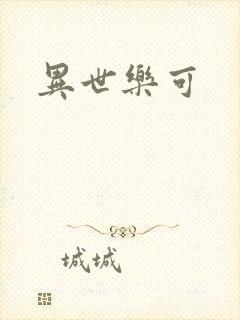 異世樂可
城城